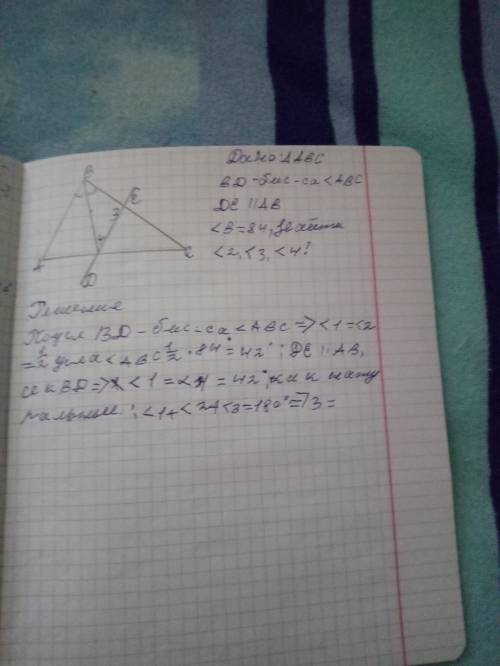 B
E
3
4
A
D
C
Дано: ΔABC
BD - бис-са <ABC
DE || AB
<B=84, найти
<2, <3, <4?
Решение
BD - бис-са <ABC => <1=<2
=1/2 угла <ABC 1/2 · 84°=42°; DE || AB,
BD => <1 = <4 = 42°,
<1+<2+<3=180° => 3=